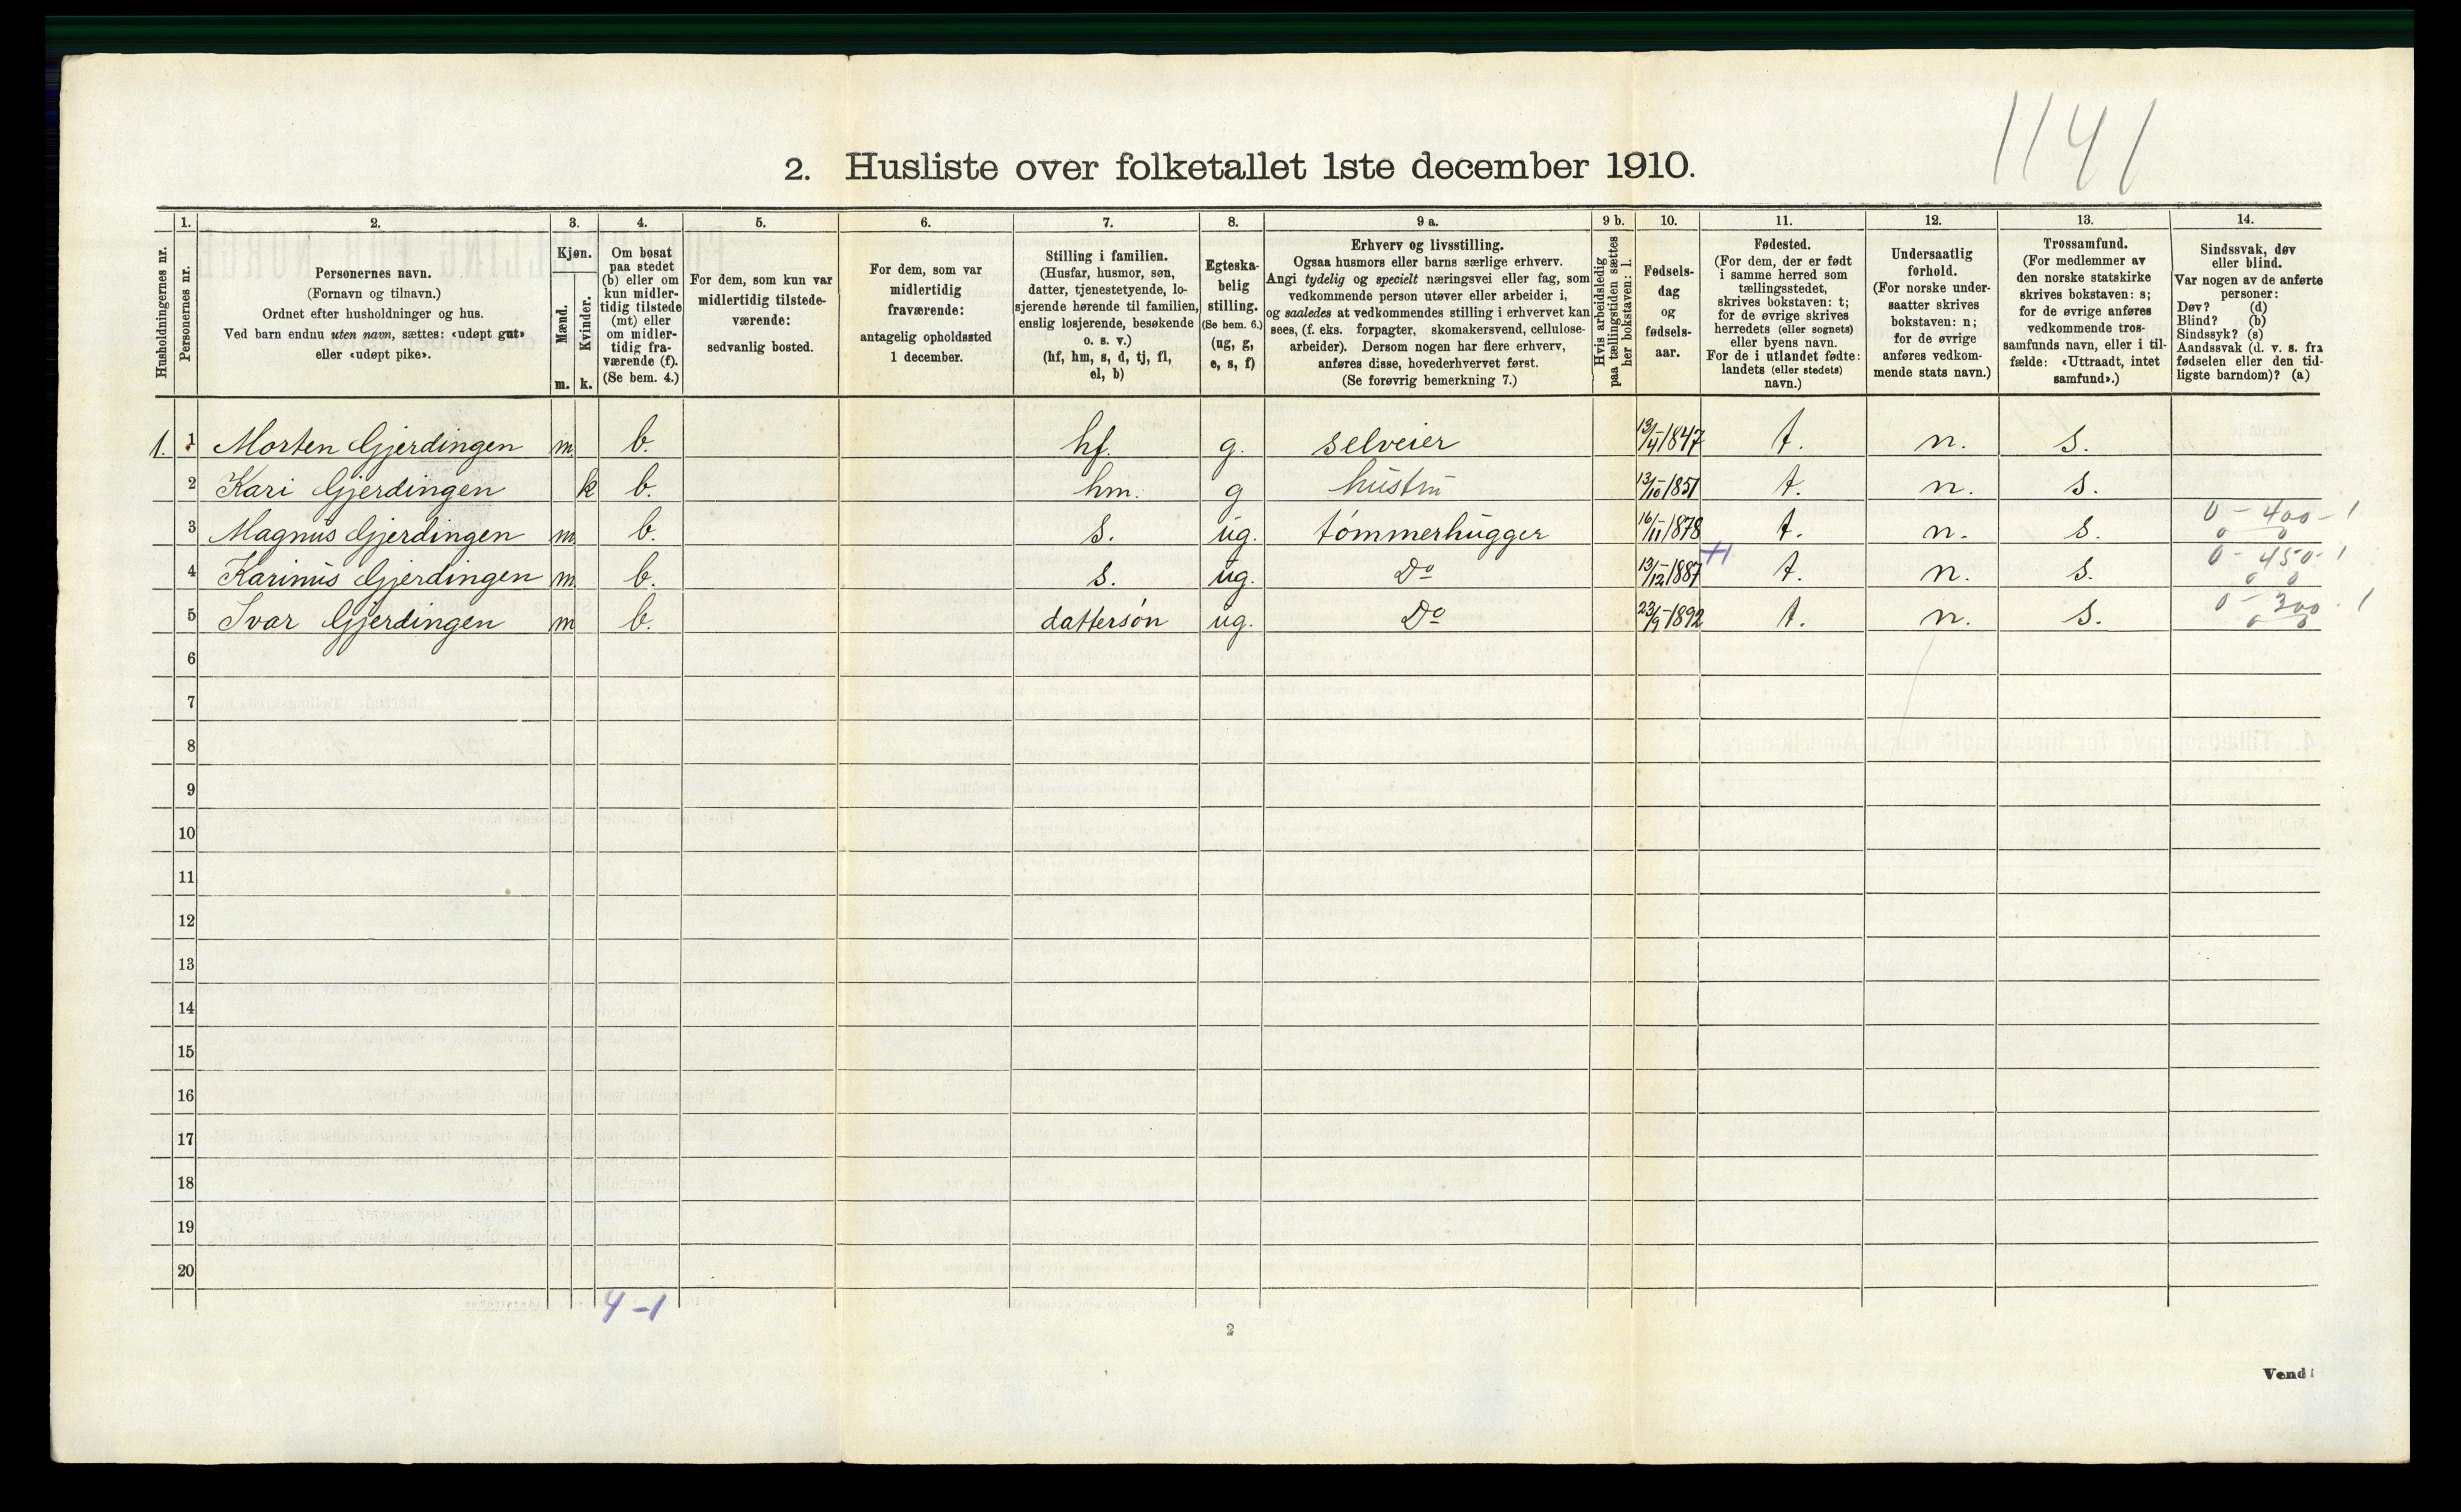 1141
2. Husliste over folketallet 1ste december 1910.
Husholdningernes nr.
1.
Personernes nr.
2.
Personernes navn.
(Fornavn og tilnavn.)
Ordnet efter husholdninger og hus.
Ved barn endnu uten navn, sættes: «udøpt gut»
eller «udøpt pike».
3.
Kjøn.
Mænd.
Kvinder.
m. k.
4.
Om bosat
paa stedet
(b) eller om
kun midler-
tidig tilstede
(mt) eller
om midler-
tidig fra-
værende (f).
(Se bem. 4.)
5.
For dem, som kun var
midlertidig tilstede-
værende:
sedvanlig bosted.
6.
For dem, som var
midlertidig
fraværende:
antagelig opholdssted
1 december.
7.
Stilling i familien.
(Husfar, husmor, søn,
datter, tjenestetyende, lo-
sjerende hørende til familien,
enslig losjerende, besøkende
o. s. v.)
(hf, hm, s, d, tj, fl,
el, b)
8.
Egteska-
belig
stilling.
(Se bem. 6.)
(ug, g,
e, s, f)
9 a.
Erhverv og livsstilling.
Ogsaa husmors eller barns særlige erhverv.
Angi tydelig og specielt næringsvei eller fag, som
vedkommende person utøver eller arbeider i,
og saaledes at vedkommendes stilling i erhvervet kan
sees, (f. eks. forpagter, skomakersvend, cellulose-
arbeider). Dersom nogen har flere erhverv,
anføres disse, hovederhvervet først.
(Se forøvrig bemerkning 7.)
9 b.
Hvis arbeidsledig
paa tællingstiden sættes
her bokstaven: l.
10.
Fødsels-
dag
og
fødsels-
aar.
11.
Fødested.
(For dem, der er født
i samme herred som
tællingsstedet,
skrives bokstaven: t;
for de øvrige skrives
herredets (eller sognets)
eller byens navn.
For de i utlandet fødte:
landets (eller stedets)
navn.)
12.
Undersaatlig
forhold.
(For norske under-
saatter skrives
bokstaven: n;
for de øvrige
anføres vedkom-
mende stats navn.)
13.
Trossamfund.
(For medlemmer av
den norske statskirke
skrives bokstaven: s;
for de øvrige anføres
vedkommende tros-
samfunds navn, eller i til-
fælde: «Uttraadt, intet
samfund».)
14.
Sindssvak, døv
eller blind.
Var nogen av de anførte
personer:
Døv? (d)
Blind? (b)
Sindssyk? (s)
Aandssvak (d. v. s. fra
fødselen eller den tid-
ligste barndom)? (a)
1. 1 Morten Gjerdingen m. b. hf. g. selveier 13/4-1847 t. n. s.
2 Kari Gjerdingen k b. hm. g hustru 13/10-1851 t. n. s.
3 Magnus Gjerdingen m. b. s. ug. tømmerhugger 16/11-1878 t. n. s. 0-400-1
0 0
4 Karinus Gjerdingen m. b. s. ug. Do 13/12-1887 t. n. s. 0-450-1
0 0
5 Ivar Gjerdingen m b. dattersøn ug. Do 23/9-1892 t. n. s. 0-300-1
0 0
6
7
8
9
10
11
12
13
14
15
16
17
18
19
20
4-1
2
Vend!